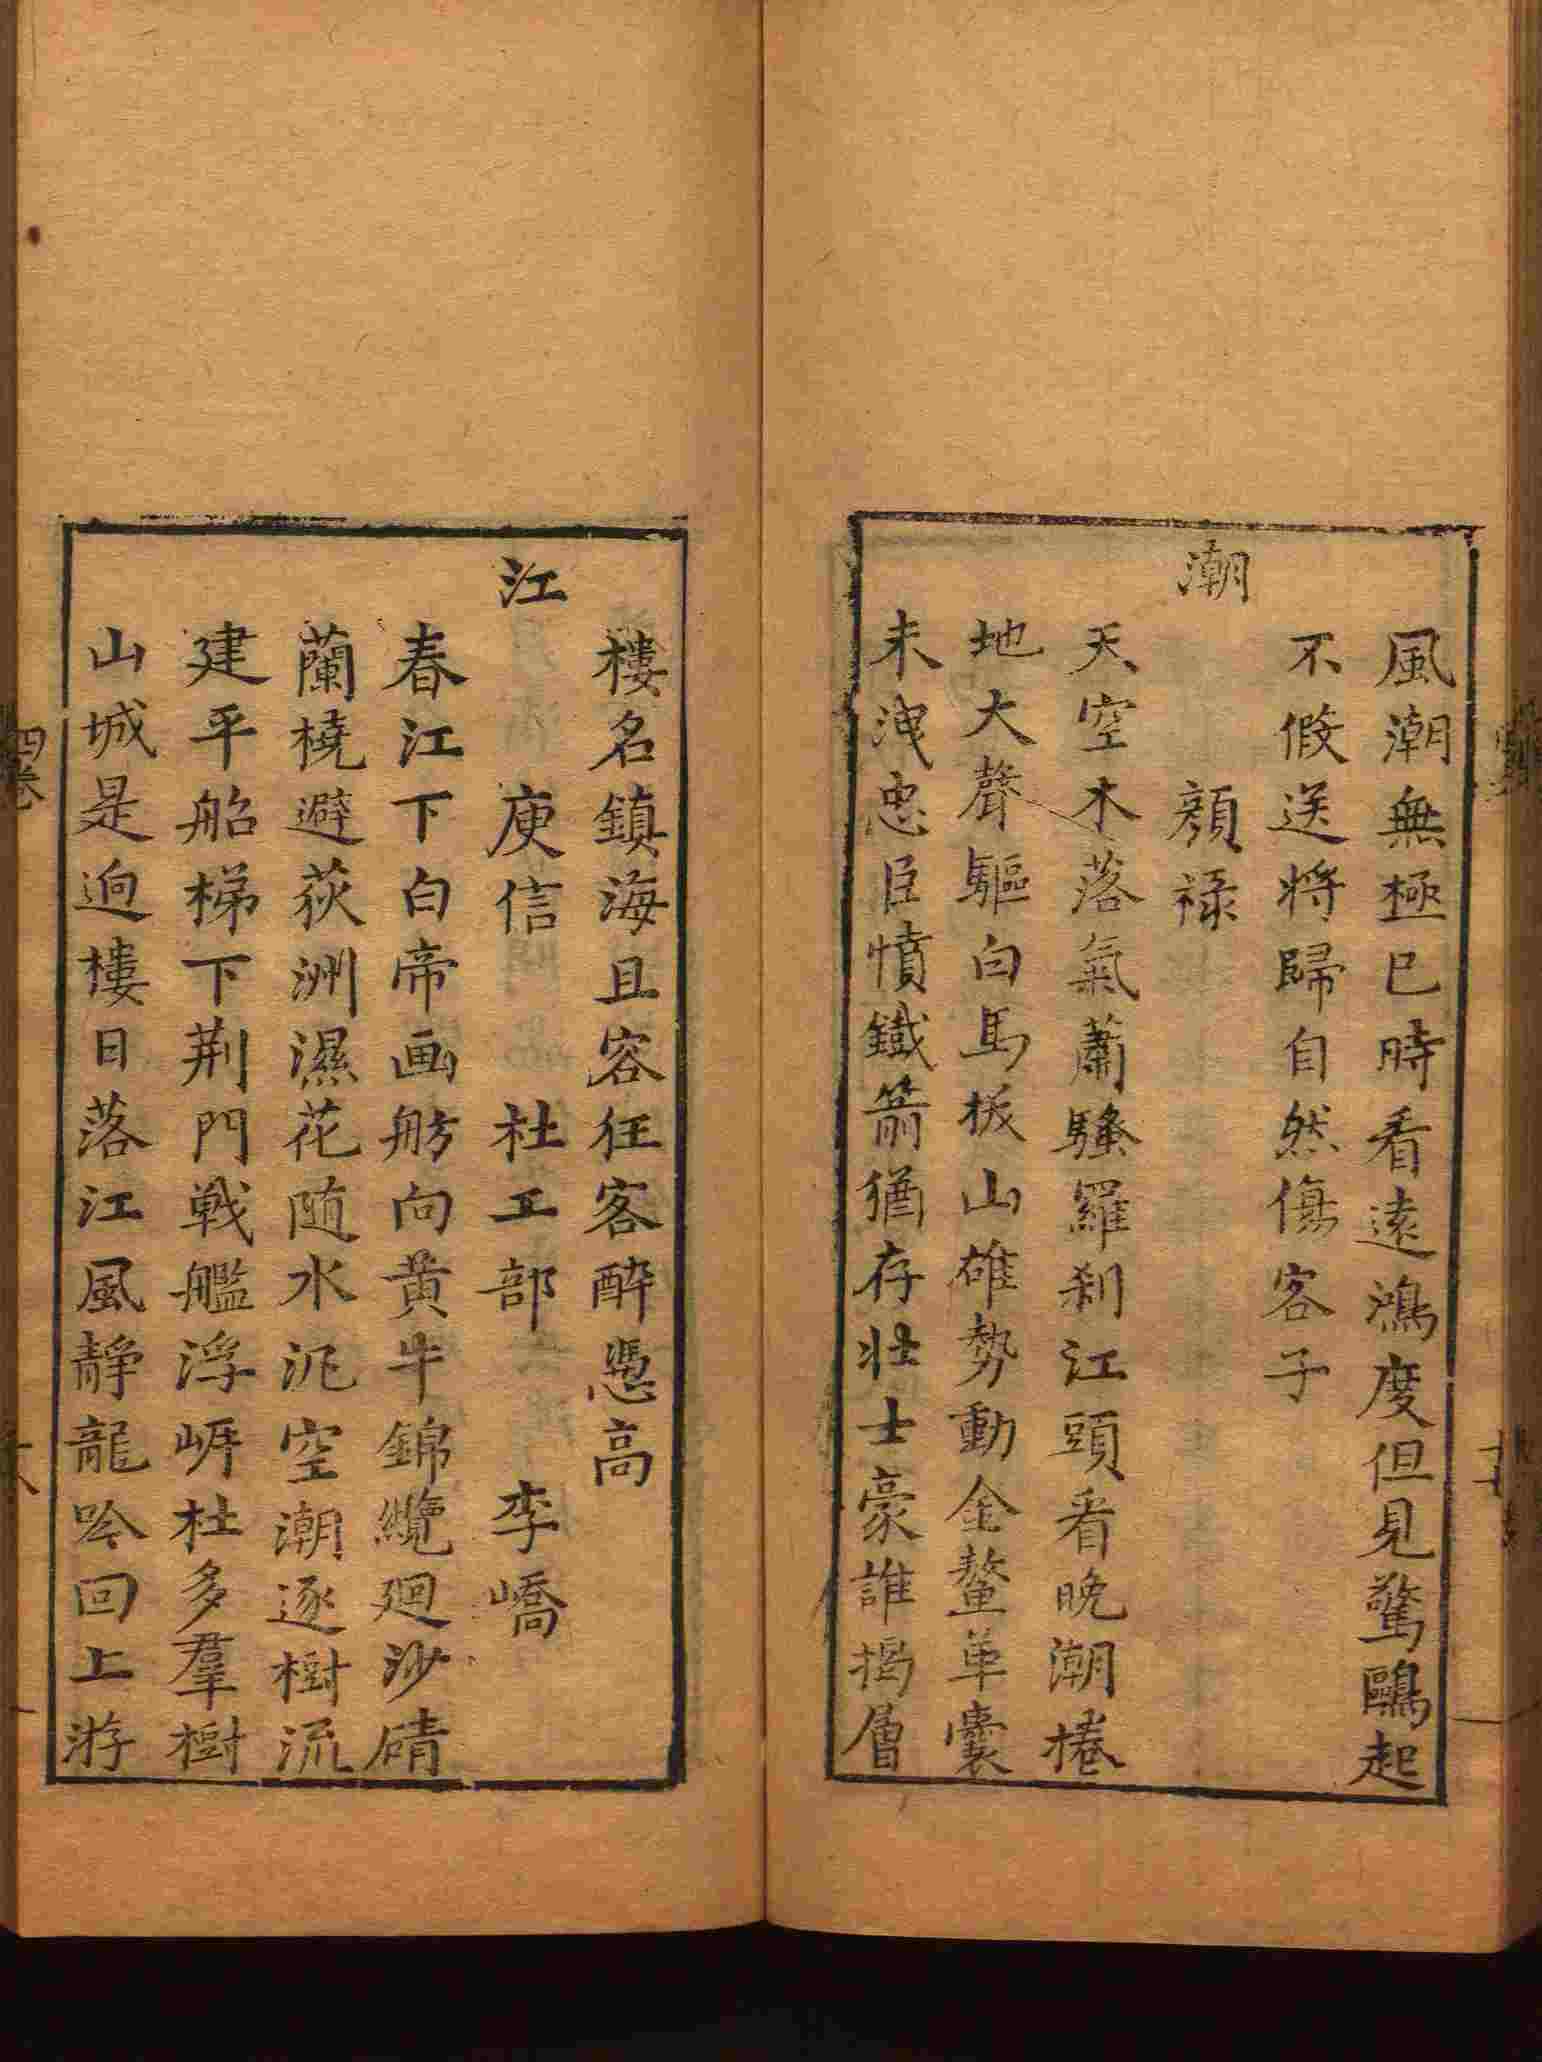 風潮無極已時看遠鴻度但見驚鷗起
不假送將歸自然傷客子
潮
顏祿
天空木落氣蕭騷羅刹江頭看晚潮捲
地大聲驅白馬拔山雄勢動金鼇單囊
未洩忠臣憤鐵箭猶存壯士豪誰搨層
樓名鎮海且容狂客醉憑高
江
庾信　杜工部　李嶠
春江下白帝画舫向黄牛錦纜廻沙磧
蘭橈避荻洲濕花随水泥空潮逐樹流
建平船梯下荆門戦艦浮岍杜多羣樹
山城是逈樓日落江風靜龍吟回上游
四卷
十八